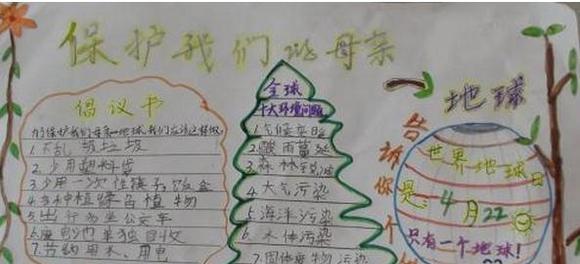 保护我们的母亲
地球
倡议书
为保护我们母亲地球,我们应该这样做
1.不乱扔垃圾
2.少用塑料袋
3.少用一次性筷子饭盒
4.多种植绿色植物
5.出行多坐公交车
7.节约用水、用电
全球
十大环境问题
1.气候变暖
3.森林
4.大气污染
5.海洋污染
6.水体污染
7.固体废物污染
告诉你个
世界地球日
是:
4月22
只有一个地球!